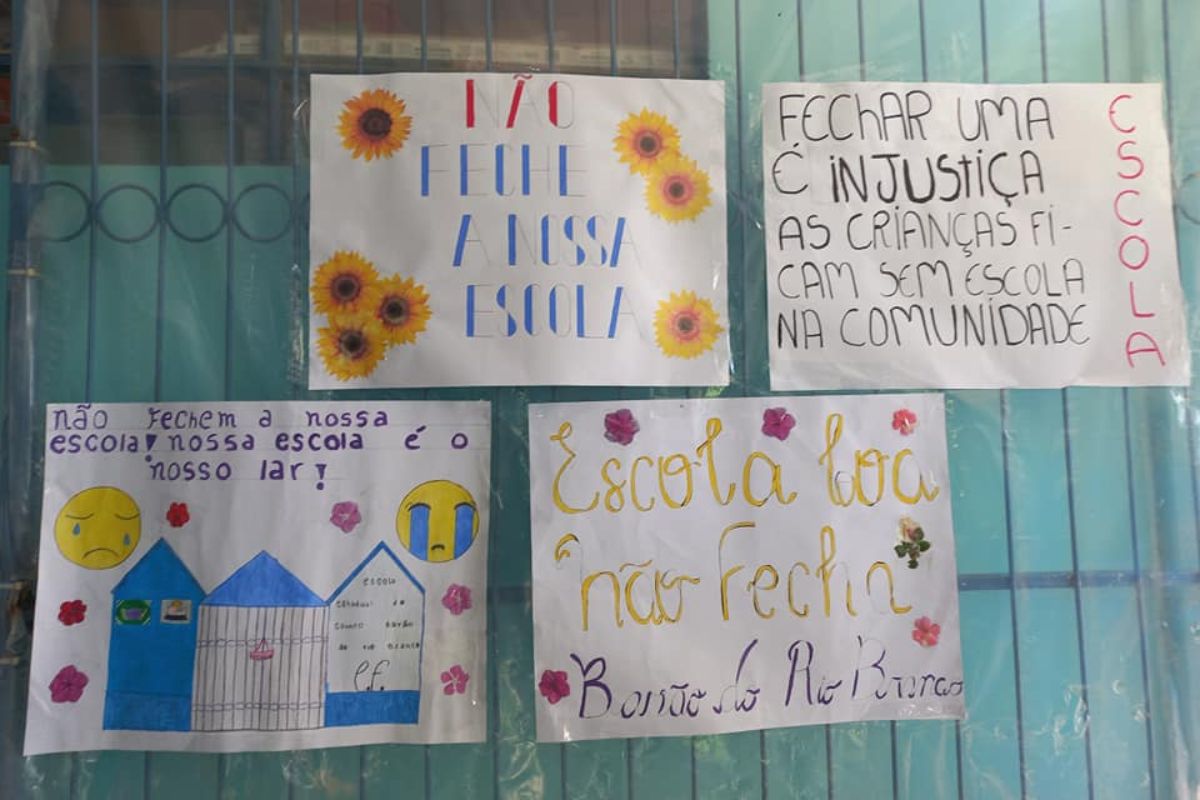 NÃO
FECHE
A NOSSA
ESCOLA
FECHAR UMA
É INJUSTIÇA
AS CRIANÇAS FI-
CAM SEM ESCOLA
NA COMUNIDADE
ESCOLA
não fechem a nossa
escola! nossa escola é o
nosso lar!
escola
estadual de
ensino barão
do rio branco
e.f.
Escola boa
não fecha
Barão do Rio Branco